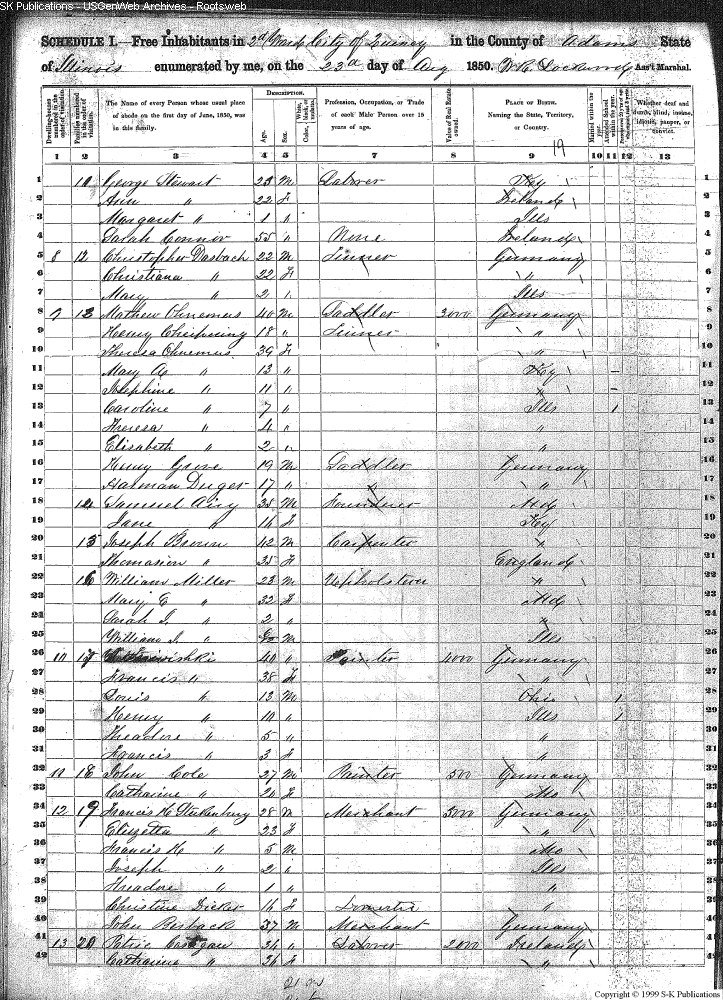 SK Publications - USGenWeb Archives - Rootsweb
SCHEDULE I.—Free Inhabitants in 2d Ward City of Quincy in the County of Adams State
of Illinois enumerated by me, on the 23d day of Aug 1850. Ass't Marshal.
Dwelling-houses numbered in the order of visitation.
Families numbered in the order of visitation.
The Name of every Person whose usual place of abode on the first day of June, 1850, was in this family.
DESCRIPTION.
Age.
Sex.
White, Color, black, or mulatto.
Profession, Occupation, or Trade of each Male Person over 15 years of age.
Value of Real Estate owned.
PLACE OF BIRTH. Naming the State, Territory, or Country.
Married within the year.
Attended School within the year.
Whether deaf and dumb, blind, insane, idiotic, pauper, or convict.
1 2 3 4 5 6 7 8 9 10 11 12 13
19
1 10 George Stewart 23 M Labrer Key 1
2 Ann " 22 F Ireland 2
3 Margaret " 1 " Ills 3
4 Sarah Connor 55 " None Ireland 4
5 8 12 Christopher Dasbach 22 M Tinner Germany 5
6 Christiana " 22 F " 6
7 Mary " 2 " Ills 7
8 9 13 Mathew Ohnemus 40 M Saddler 3000 Germany 8
9 Henry 18 " Tinner " 9
10 Theresa Ohnemus 39 F " 10
11 Mary A " 13 " Key 11
12 Josephine " 11 " " 12
13 Caroline " 7 " Ills 1 13
14 Theresa " 4 " " 14
15 Elisabeth " 2 " " 15
16 Henry Grove 19 M Saddler Germany 16
17 Harman Duger 17 " " " 17
18 14 Samuel Airy 38 M Md 18
19 Jane " 16 F Key 19
20 15 Joseph Brown 42 M Carpenter " 20
21 Thomasion " 35 F England 21
22 16 William Miller 23 M Upholsterer " 22
23 Mary E " 32 F Md 23
24 Sarah J. " 2 " " 24
25 William J. " M Ills 25
26 10 17 40 " Painter 4000 Germany 26
27 Francis " 38 F " 27
28 Louis " 13 M Ohio 1 28
29 Henry " 10 " Ills 1 29
30 Theadore " 5 " " 30
31 Francis " 3 F " 31
32 10 18 John Cole 27 M Painter 500 Germany 32
33 Catharine " 20 F Mo 33
34 12 19 Francis H Sturkenburg 28 M Merchant 5000 Germany 34
35 Elizetta " 23 F " 35
36 Francis H " 5 M Mo 36
37 Joseph " 2 " Ills 37
38 Theadore " 1 " " 38
39 Christine Dicker 16 F Domestic " 39
40 John Berback 37 M Merchant Germany 40
41 13 20 Patric 36 " Labrer 2000 Ireland 41
42 Catharine " 26 F " 42
Copyright © 1999 S-K Publications